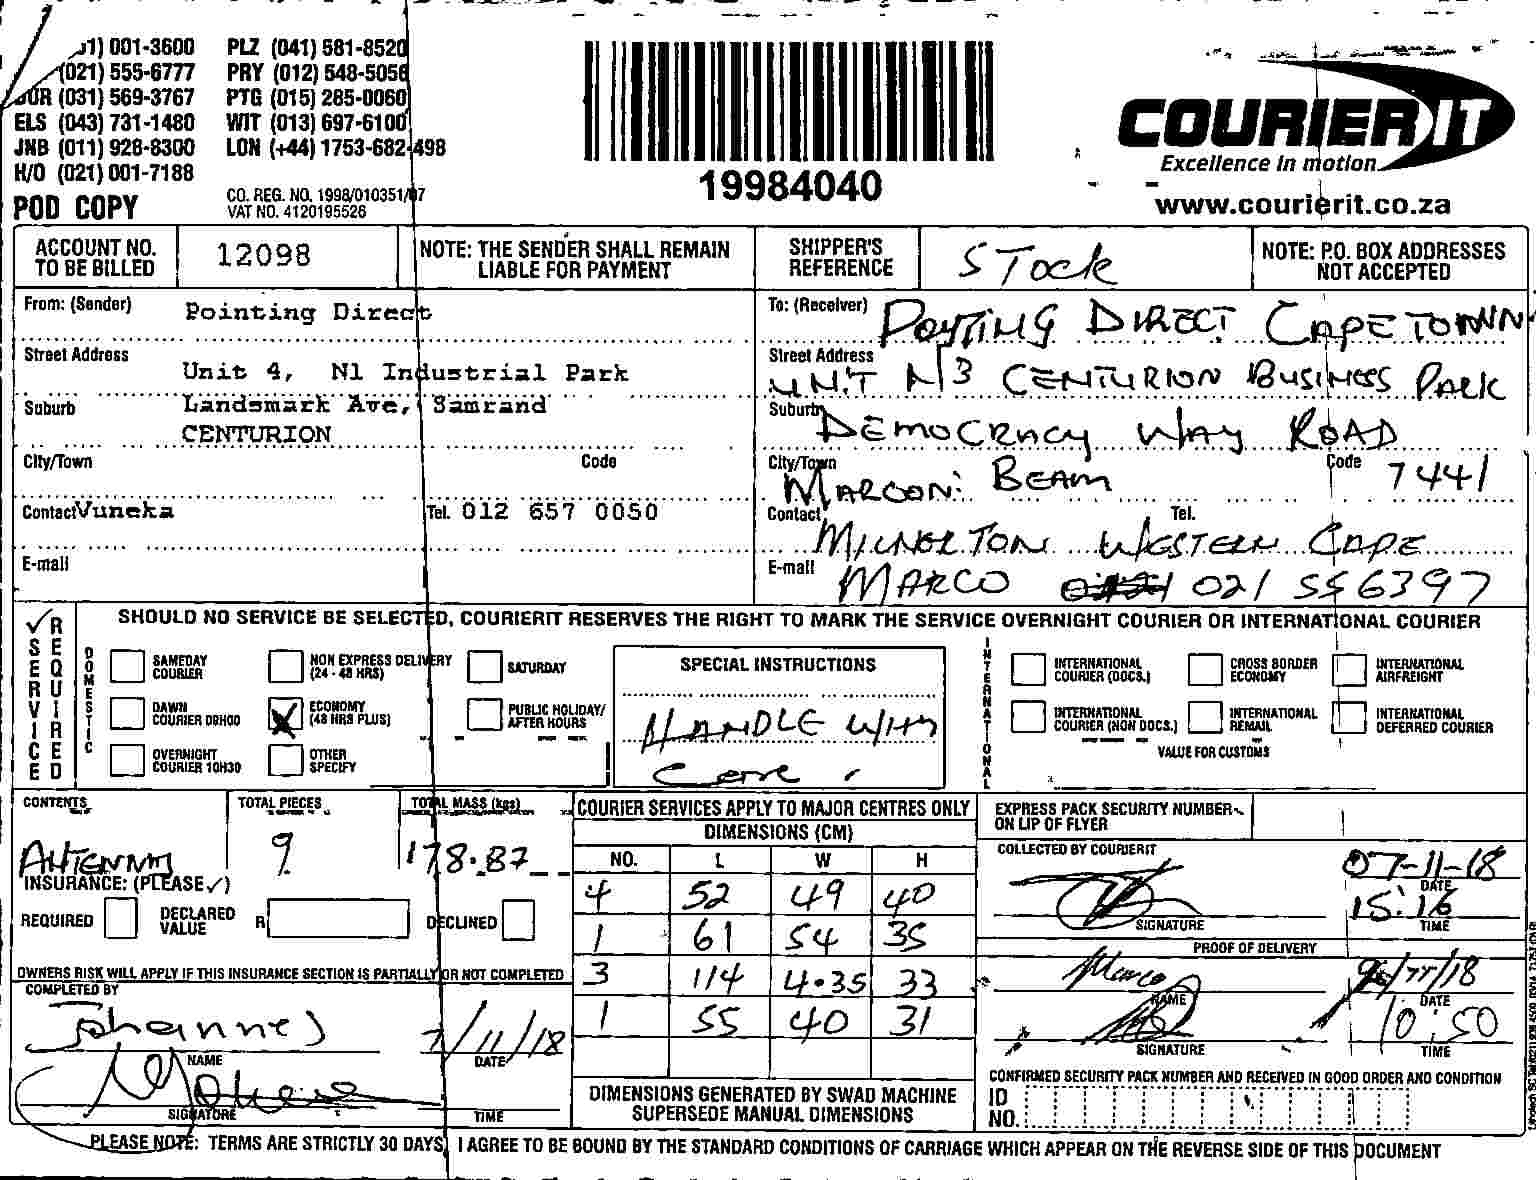 001-3600 PLZ (041) 581-8520
(021) 555-6777 PRY (012) 548-5056
DUR (031) 569-3767 PTG (015) 285-0060
ELS (043) 731-1480 WIT (013) 697-6100
JNB (011) 928-8300 LON (+44) 1753-682-498
H/O (021) 001-7188
POD COPY
CO. REG. NO. 1998/010351/07
VAT NO. 4120195526
19984040
COURIER IT
Excellence in motion
www.courierit.co.za
ACCOUNT NO. TO BE BILLED 12098
NOTE: THE SENDER SHALL REMAIN LIABLE FOR PAYMENT
SHIPPER'S REFERENCE STock
NOTE: P.O. BOX ADDRESSES NOT ACCEPTED
From: (Sender) Pointing Direct
Street Address Unit 4, N1 Industrial Park
Suburb Landsmark Ave, Samrand
CENTURION
City/Town Code
Contact Vuneka Tel. 012 657 0050
E-mail
To: (Receiver) POYTING DIRECT CAPE TOWN
Street Address UNIT N13 CENTURION BUSINESS PARK
Suburb DEMOCRACY WAY ROAD
City/Town MARCONI BEAM Code 7441
Contact Tel.
MILNERTON WESTERN CAPE
E-mail MARCO 021 556397
✓ SERVICE REQUIRED
SHOULD NO SERVICE BE SELECTED, COURIERIT RESERVES THE RIGHT TO MARK THE SERVICE OVERNIGHT COURIER OR INTERNATIONAL COURIER
DOMESTIC
SAMEDAY COURIER
NON EXPRESS DELIVERY (24 - 48 HRS)
SATURDAY
DAWN COURIER 09H00
ECONOMY (48 HRS PLUS)
PUBLIC HOLIDAY/ AFTER HOURS
OVERNIGHT COURIER 10H30
OTHER SPECIFY
SPECIAL INSTRUCTIONS
HANDLE WITH
Care
INTERNATIONAL
INTERNATIONAL COURIER (DOCS.)
CROSS BORDER ECONOMY
INTERNATIONAL AIRFREIGHT
INTERNATIONAL COURIER (NON DOCS.)
INTERNATIONAL REMAIL
INTERNATIONAL DEFERRED COURIER
VALUE FOR CUSTOMS
CONTENTS TOTAL PIECES TOTAL MASS (kgs)
ANTENNA 9 178.87
INSURANCE: (PLEASE ✓)
REQUIRED DECLARED VALUE R DECLINED
OWNERS RISK WILL APPLY IF THIS INSURANCE SECTION IS PARTIALLY OR NOT COMPLETED
COMPLETED BY
Johannes 7/11/18
NAME DATE
SIGNATURE TIME
COURIER SERVICES APPLY TO MAJOR CENTRES ONLY
DIMENSIONS (CM)
NO. L W H
4 52 49 40
1 61 54 35
3 114 4.35 33
1 55 40 31
DIMENSIONS GENERATED BY SWAD MACHINE
SUPERSEDE MANUAL DIMENSIONS
EXPRESS PACK SECURITY NUMBER
ON LIP OF FLYER
COLLECTED BY COURIERIT
07-11-18
DATE
15:16
SIGNATURE TIME
PROOF OF DELIVERY
Marco
NAME DATE
10:50
SIGNATURE TIME
CONFIRMED SECURITY PACK NUMBER AND RECEIVED IN GOOD ORDER AND CONDITION
ID NO.
PLEASE NOTE: TERMS ARE STRICTLY 30 DAYS, I AGREE TO BE BOUND BY THE STANDARD CONDITIONS OF CARRIAGE WHICH APPEAR ON THE REVERSE SIDE OF THIS DOCUMENT